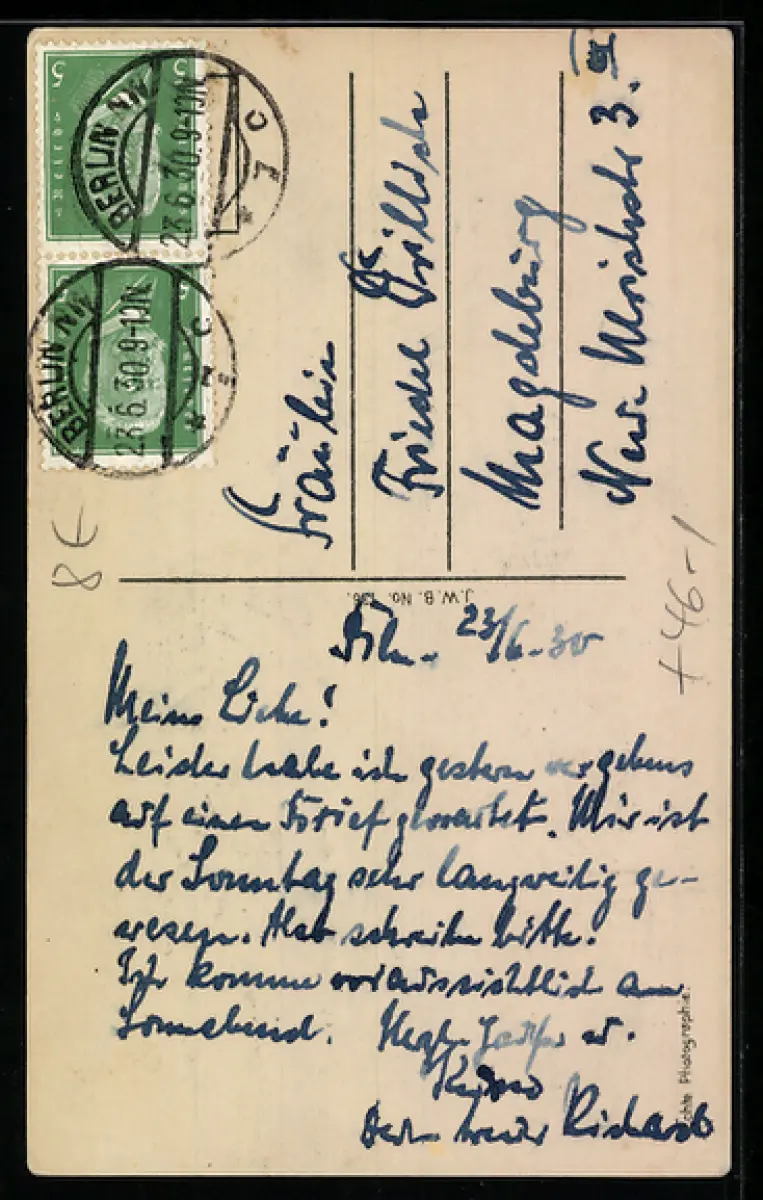 5
5
BERLIN NW
23.6.30.9-10N.
* 7 c
BERLIN NW
23.6.30.9-10N
* 7 c
Fräulein
Friedel
Magdeburg
Neue 3. III
8€
+46-1
J.W.B. No. 136.
Bln. 23/6.30
Meine Liebe!
Leider habe ich gestern vergebens
auf einen Brief gewartet. Mir ist
der Sonntag sehr langweilig ge-
wesen. Also schreibe bitte.
Ich komme voraussichtlich am
Sonnabend. Herzl. Grüße u.
Küsse
Dein treuer Richard
Echte Photographie.